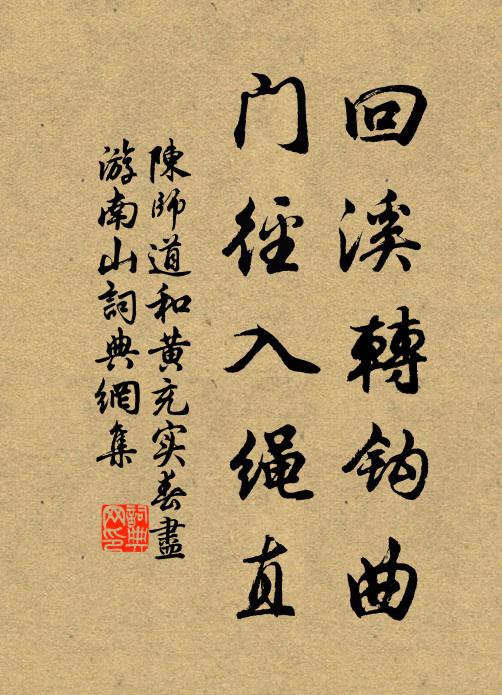 回溪轉鈎曲
门徑入绳直
陳師道和黄充实春盡
游南山詞典網集
詞典网印